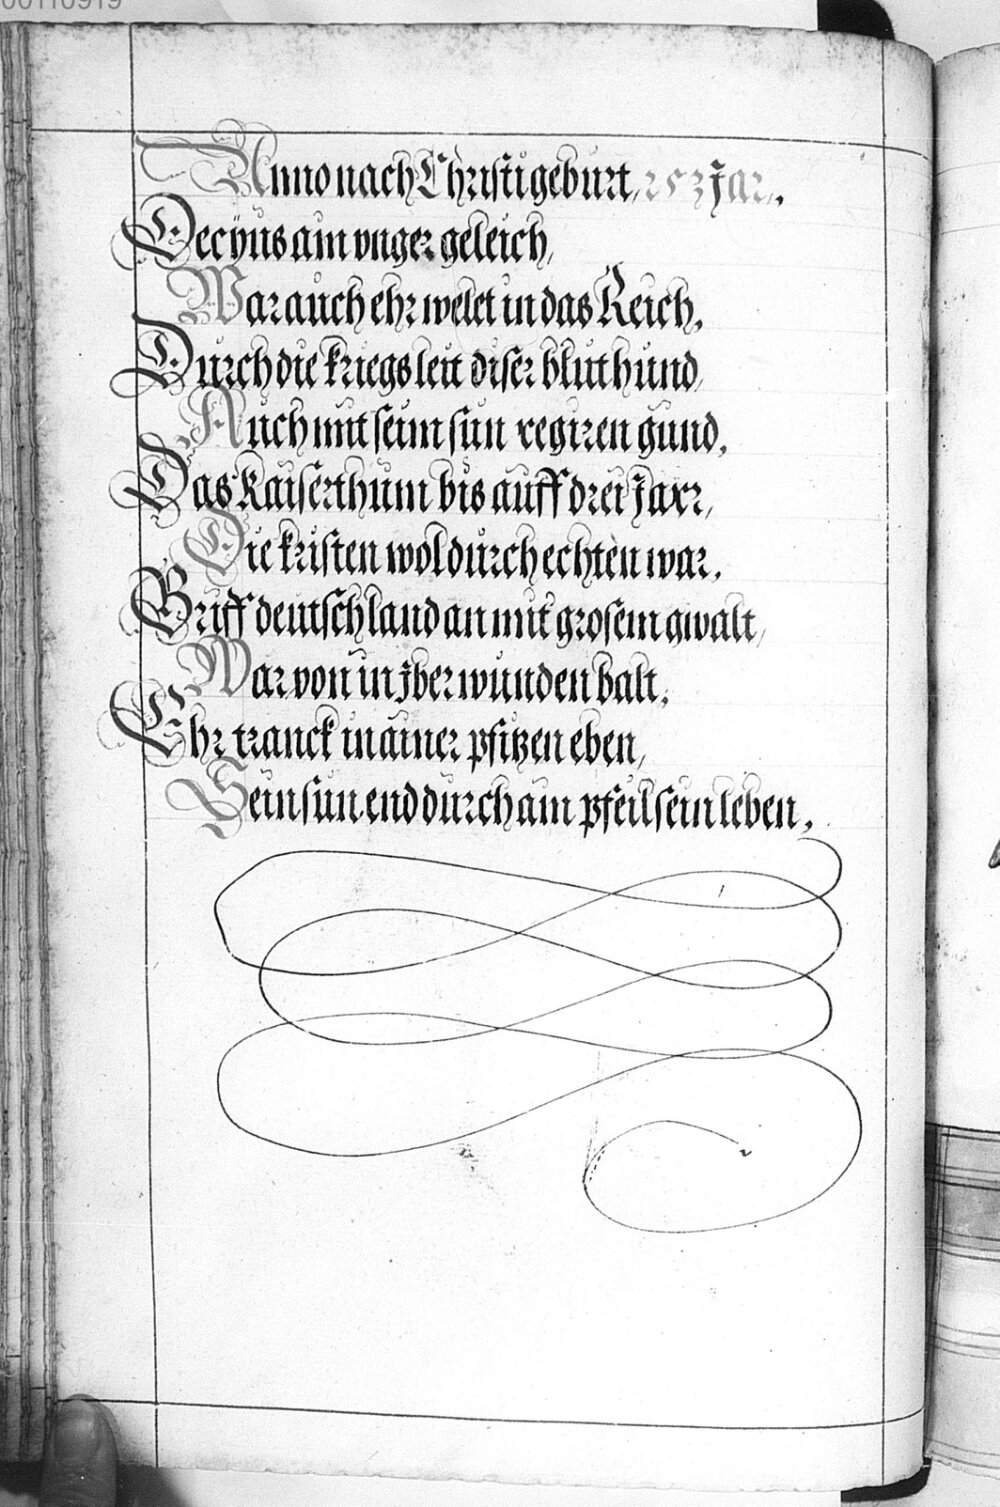 00110919
Anno nach Christi geburt, 252 Jar.,
Decyus ain vnger geleich,
War auch ehrwelet in das Reich,
Durch die kriegsleit diser bluthund,
Auch mit seim sun regiren gund,
Das Kaiserthum bis auff drei Jaxr,
Die kristen wol durchechten war,
Griff deutschland an mit grosem gwalt,
War von in jberwunden balt,
Ehr tranck in ainer pfitzen eben,
Sein sun end durch ain pfeil sein leben,